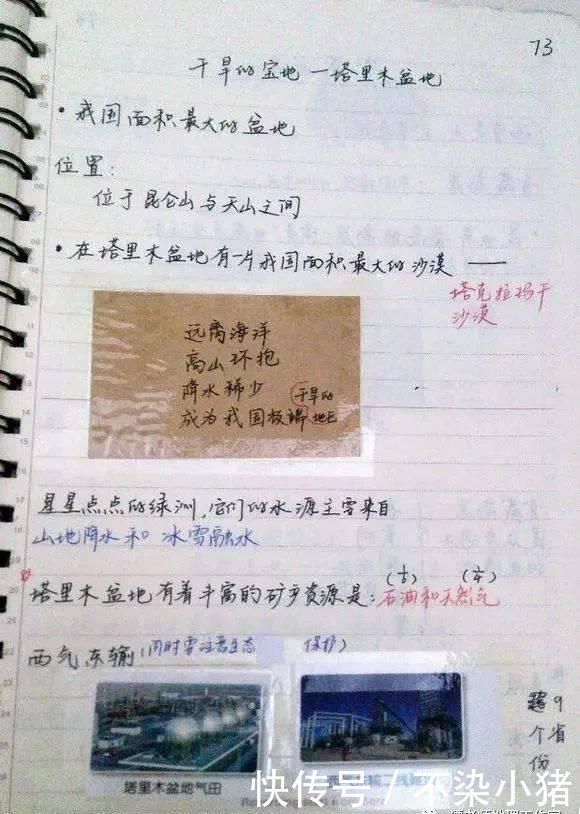 73
干旱的宝地—塔里木盆地
•我国面积最大的盆地
位置：
位于昆仑山与天山之间
•在塔里木盆地有一片我国面积最大的沙漠——
塔克拉玛干
沙漠
远离海洋
高山环抱
降水稀少
成为我国极端
干旱的
地区
星星点点的绿洲,它们的水源主要来自
山地降水和冰雪融水
塔里木盆地有着丰富的矿产资源是:石油和天然气
西气东输(同时要注意生态
保护)
跨9
个省
份
塔里木盆地气田
快传号/不染小猪